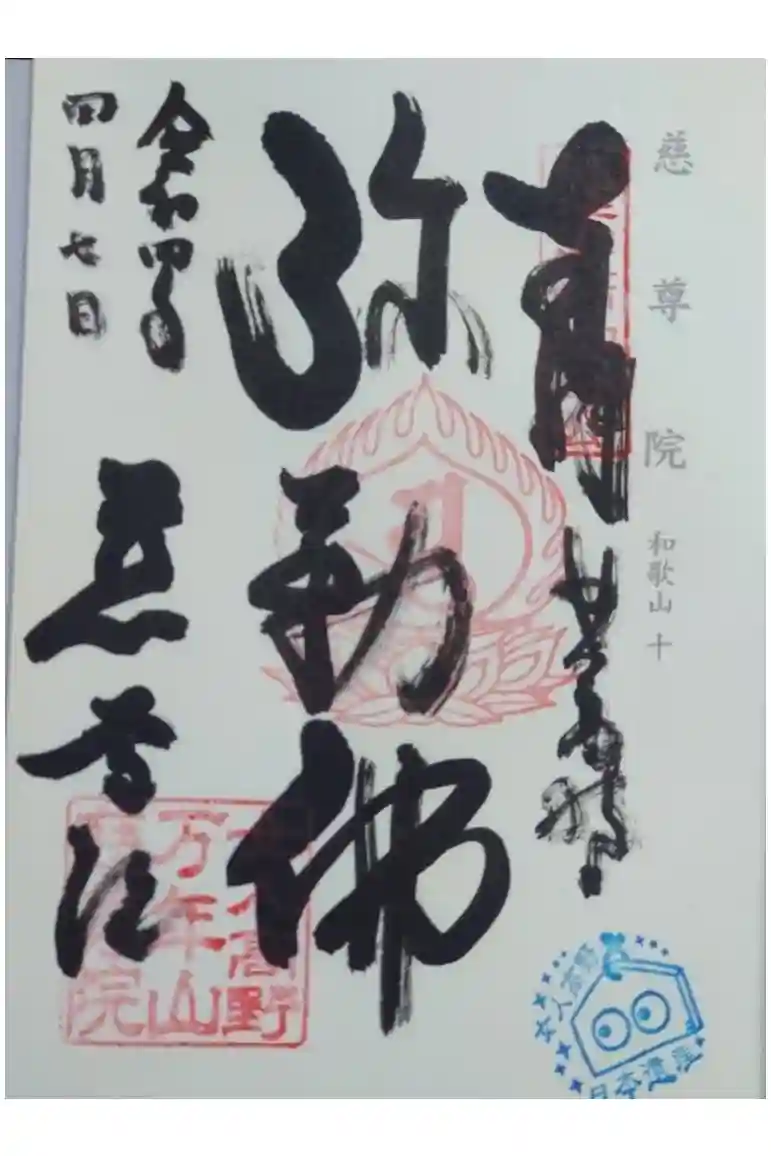 慈尊院 和歌山 十
弥勒佛
令和四年
四月七日
慈尊院
女人高野
万年山
慈尊院
女人高野
日本遺産